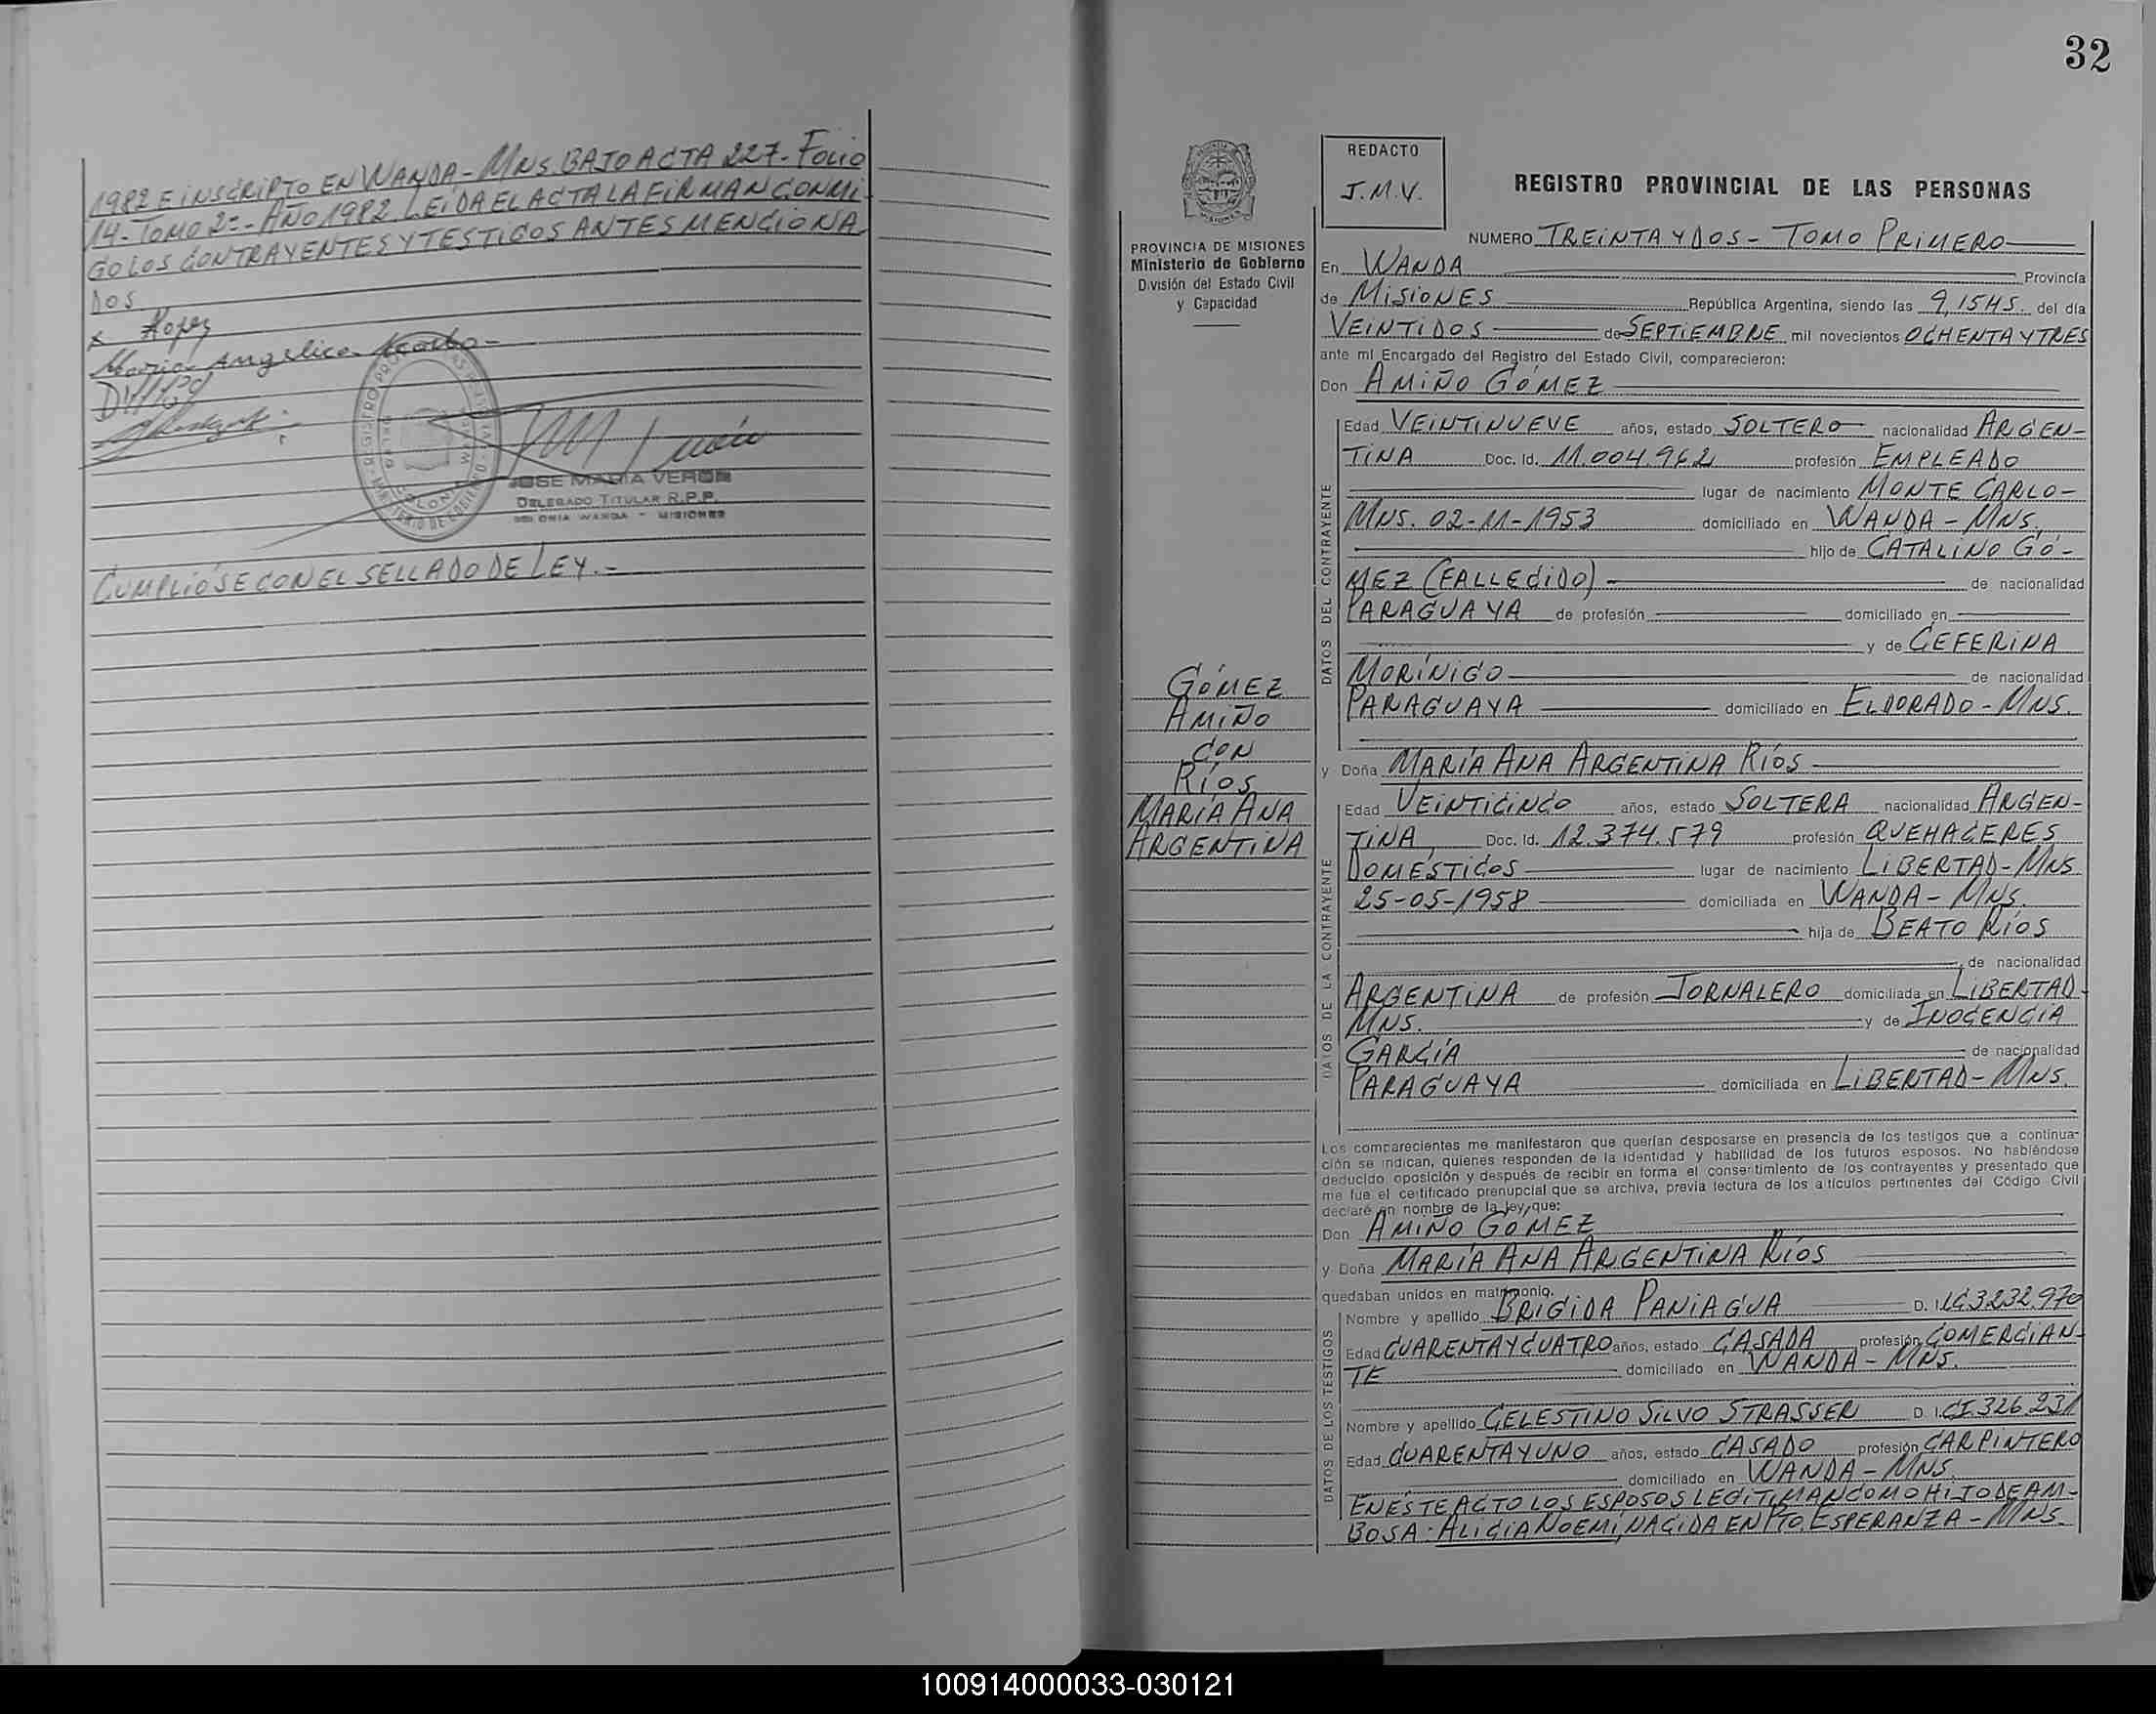 1982 E INSCRIPTO EN WANDA - MNS. BAJO ACTA 227 - FOLIO
14 - TOMO 2º - AÑO 1982. LEÍDA EL ACTA LA FIRMAN CONMI-
GO LOS CONTRAYENTES Y TESTIGOS ANTES MENCIONA
DOS
Maria Angelica
JOSE MARIA VERON
DELEGADO TITULAR R.P.P.
COLONIA WANDA - MISIONES
CUMPLIÓSE CON EL SELLADO DE LEY.-
32
PROVINCIA DE MISIONES
Ministerio de Gobierno
División del Estado Civil
y Capacidad
GÓMEZ
AMIÑO
CON
RÍOS
MARÍA ANA
ARGENTINA
REDACTO
J.M.V.
REGISTRO PROVINCIAL DE LAS PERSONAS
NUMERO TREINTA Y DOS - TOMO PRIMERO
En WANDA Provincia
de MISIONES República Argentina, siendo las 9,15 HS. del día
VEINTIDOS de SEPTIEMBRE mil novecientos OCHENTA Y TRES
ante mi Encargado del Registro del Estado Civil, comparecieron:
Don AMIÑO GÓMEZ
DATOS DEL CONTRAYENTE
Edad VEINTINUEVE años, estado SOLTERO nacionalidad ARGEN-
TINA Doc. Id. 11.004.962 profesión EMPLEADO
lugar de nacimiento MONTE CARLO-
MNS. 02-11-1953 domiciliado en WANDA - MNS.
hijo de CATALINO GÓ-
MEZ (FALLECIDO) - de nacionalidad
PARAGUAYA de profesión domiciliado en
y de CEFERINA
MORÍNIGO de nacionalidad
PARAGUAYA domiciliado en ELDORADO - MNS.
y Doña MARÍA ANA ARGENTINA RÍOS
DATOS DE LA CONTRAYENTE
Edad VEINTICINCO años, estado SOLTERA nacionalidad ARGEN-
TINA Doc. Id. 12.374.579 profesión QUEHACERES
DOMÉSTICOS lugar de nacimiento LIBERTAD - MNS
25-05-1958 domiciliada en WANDA - MNS.
hija de BEATO RÍOS
de nacionalidad
ARGENTINA de profesión JORNALERO domiciliada en LIBERTAD-
MNS. y de INOCENCIA
GARCÍA de nacionalidad
PARAGUAYA domiciliada en LIBERTAD - MNS.
Los comparecientes me manifestaron que querían desposarse en presencia de los testigos que a continua-
ción se indican, quienes responden de la identidad y habilidad de los futuros esposos. No habiéndose
deducido oposición y después de recibir en forma el consentimiento de los contrayentes y presentado que
me fue el certificado prenupcial que se archiva, previa lectura de los artículos pertinentes del Código Civil
declaré en nombre de la ley, que:
Don AMIÑO GOMEZ
y Doña MARÍA ANA ARGENTINA RÍOS
quedaban unidos en matrimonio.
DATOS DE LOS TESTIGOS
Nombre y apellido BRIGIDA PANIAGUA D. I. LC 3232.970
Edad CUARENTA Y CUATRO años, estado CASADA profesión COMERCIAN-
TE domiciliado en WANDA - MNS.
Nombre y apellido CELESTINO SILVO STRASSER D. I. CI 326.231
Edad CUARENTA Y UNO años, estado CASADO profesión CARPINTERO
domiciliado en WANDA - MNS.
EN ESTE ACTO LOS ESPOSOS LEGITIMAN COMO HIJO DE AM-
BOS A: ALICIA NOEMI, NACIDA EN PTO. ESPERANZA - MNS.
100914000033-030121